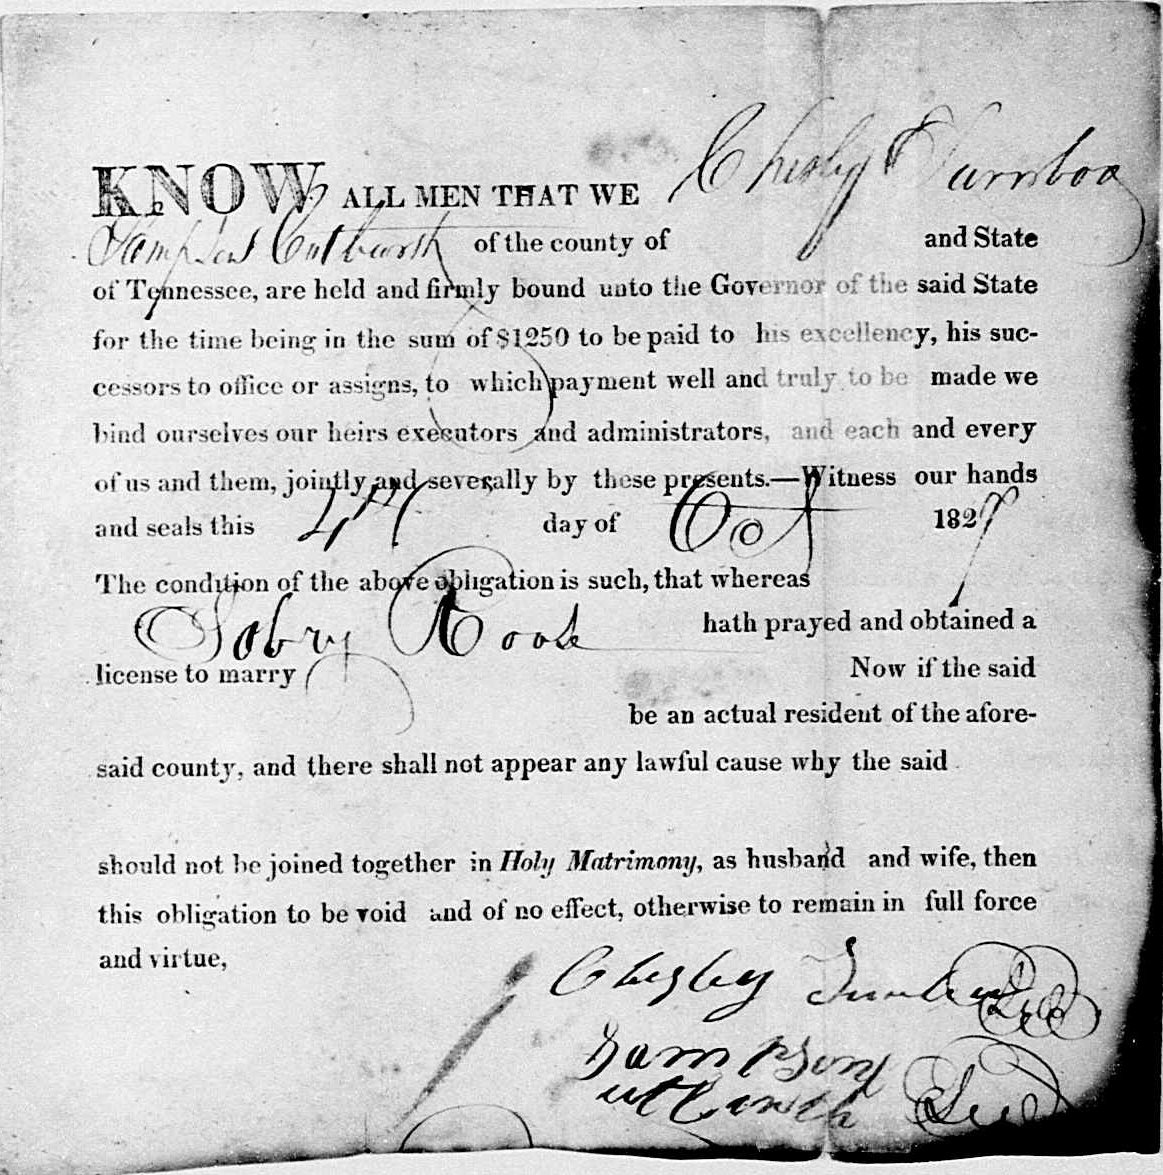 KNOW ALL MEN THAT WE Chesley Turnboa
Sampson Cuthburth of the county of and State
of Tennessee, are held and firmly bound unto the Governor of the said State
for the time being in the sum of $1250 to be paid to his excellency, his suc-
cessors to office or assigns, to which payment well and truly to be made we
bind ourselves our heirs executors and administrators, and each and every
of us and them, jointly and severally by these presents.—Witness our hands
and seals this 4th day of Oct 1827
The condition of the above obligation is such, that whereas
hath prayed and obtained a
license to marry Now if the said
be an actual resident of the afore-
said county, and there shall not appear any lawful cause why the said
should not be joined together in Holy Matrimony, as husband and wife, then
this obligation to be void and of no effect, otherwise to remain in full force
and virtue,
Chesley
Sampson